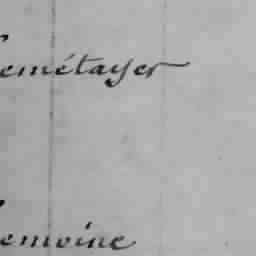 emétayer
emoine